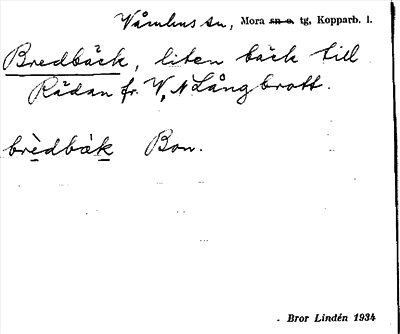 Våmhus sn, Mora sn o. tg, Kopparb. l.
Bredbäck, liten bäck till
Rädan fr. V, N Långbrott.
brèdbàk Bon.
. Bror Lindén 1934